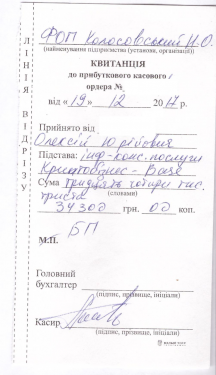 ЛІНІЯ ВІДРІЗУ
ФОП Колосовський Н.О.
(найменування підприємства (установи, організації))
КВИТАНЦІЯ
до прибуткового касового
ордера №
від «19» 12 2017 р.
Прийнято від
Олексій Юрійович
Підстава: інф-конс. послуги
Криптобізнес - Base
Сума тридцять чотири тис.
триста
(словами)
34300 грн. 00 коп.
БП
М.П.
Головний
бухгалтер
(підпис, прізвище, ініціали)
Касир
(підпис, прізвище, ініціали)